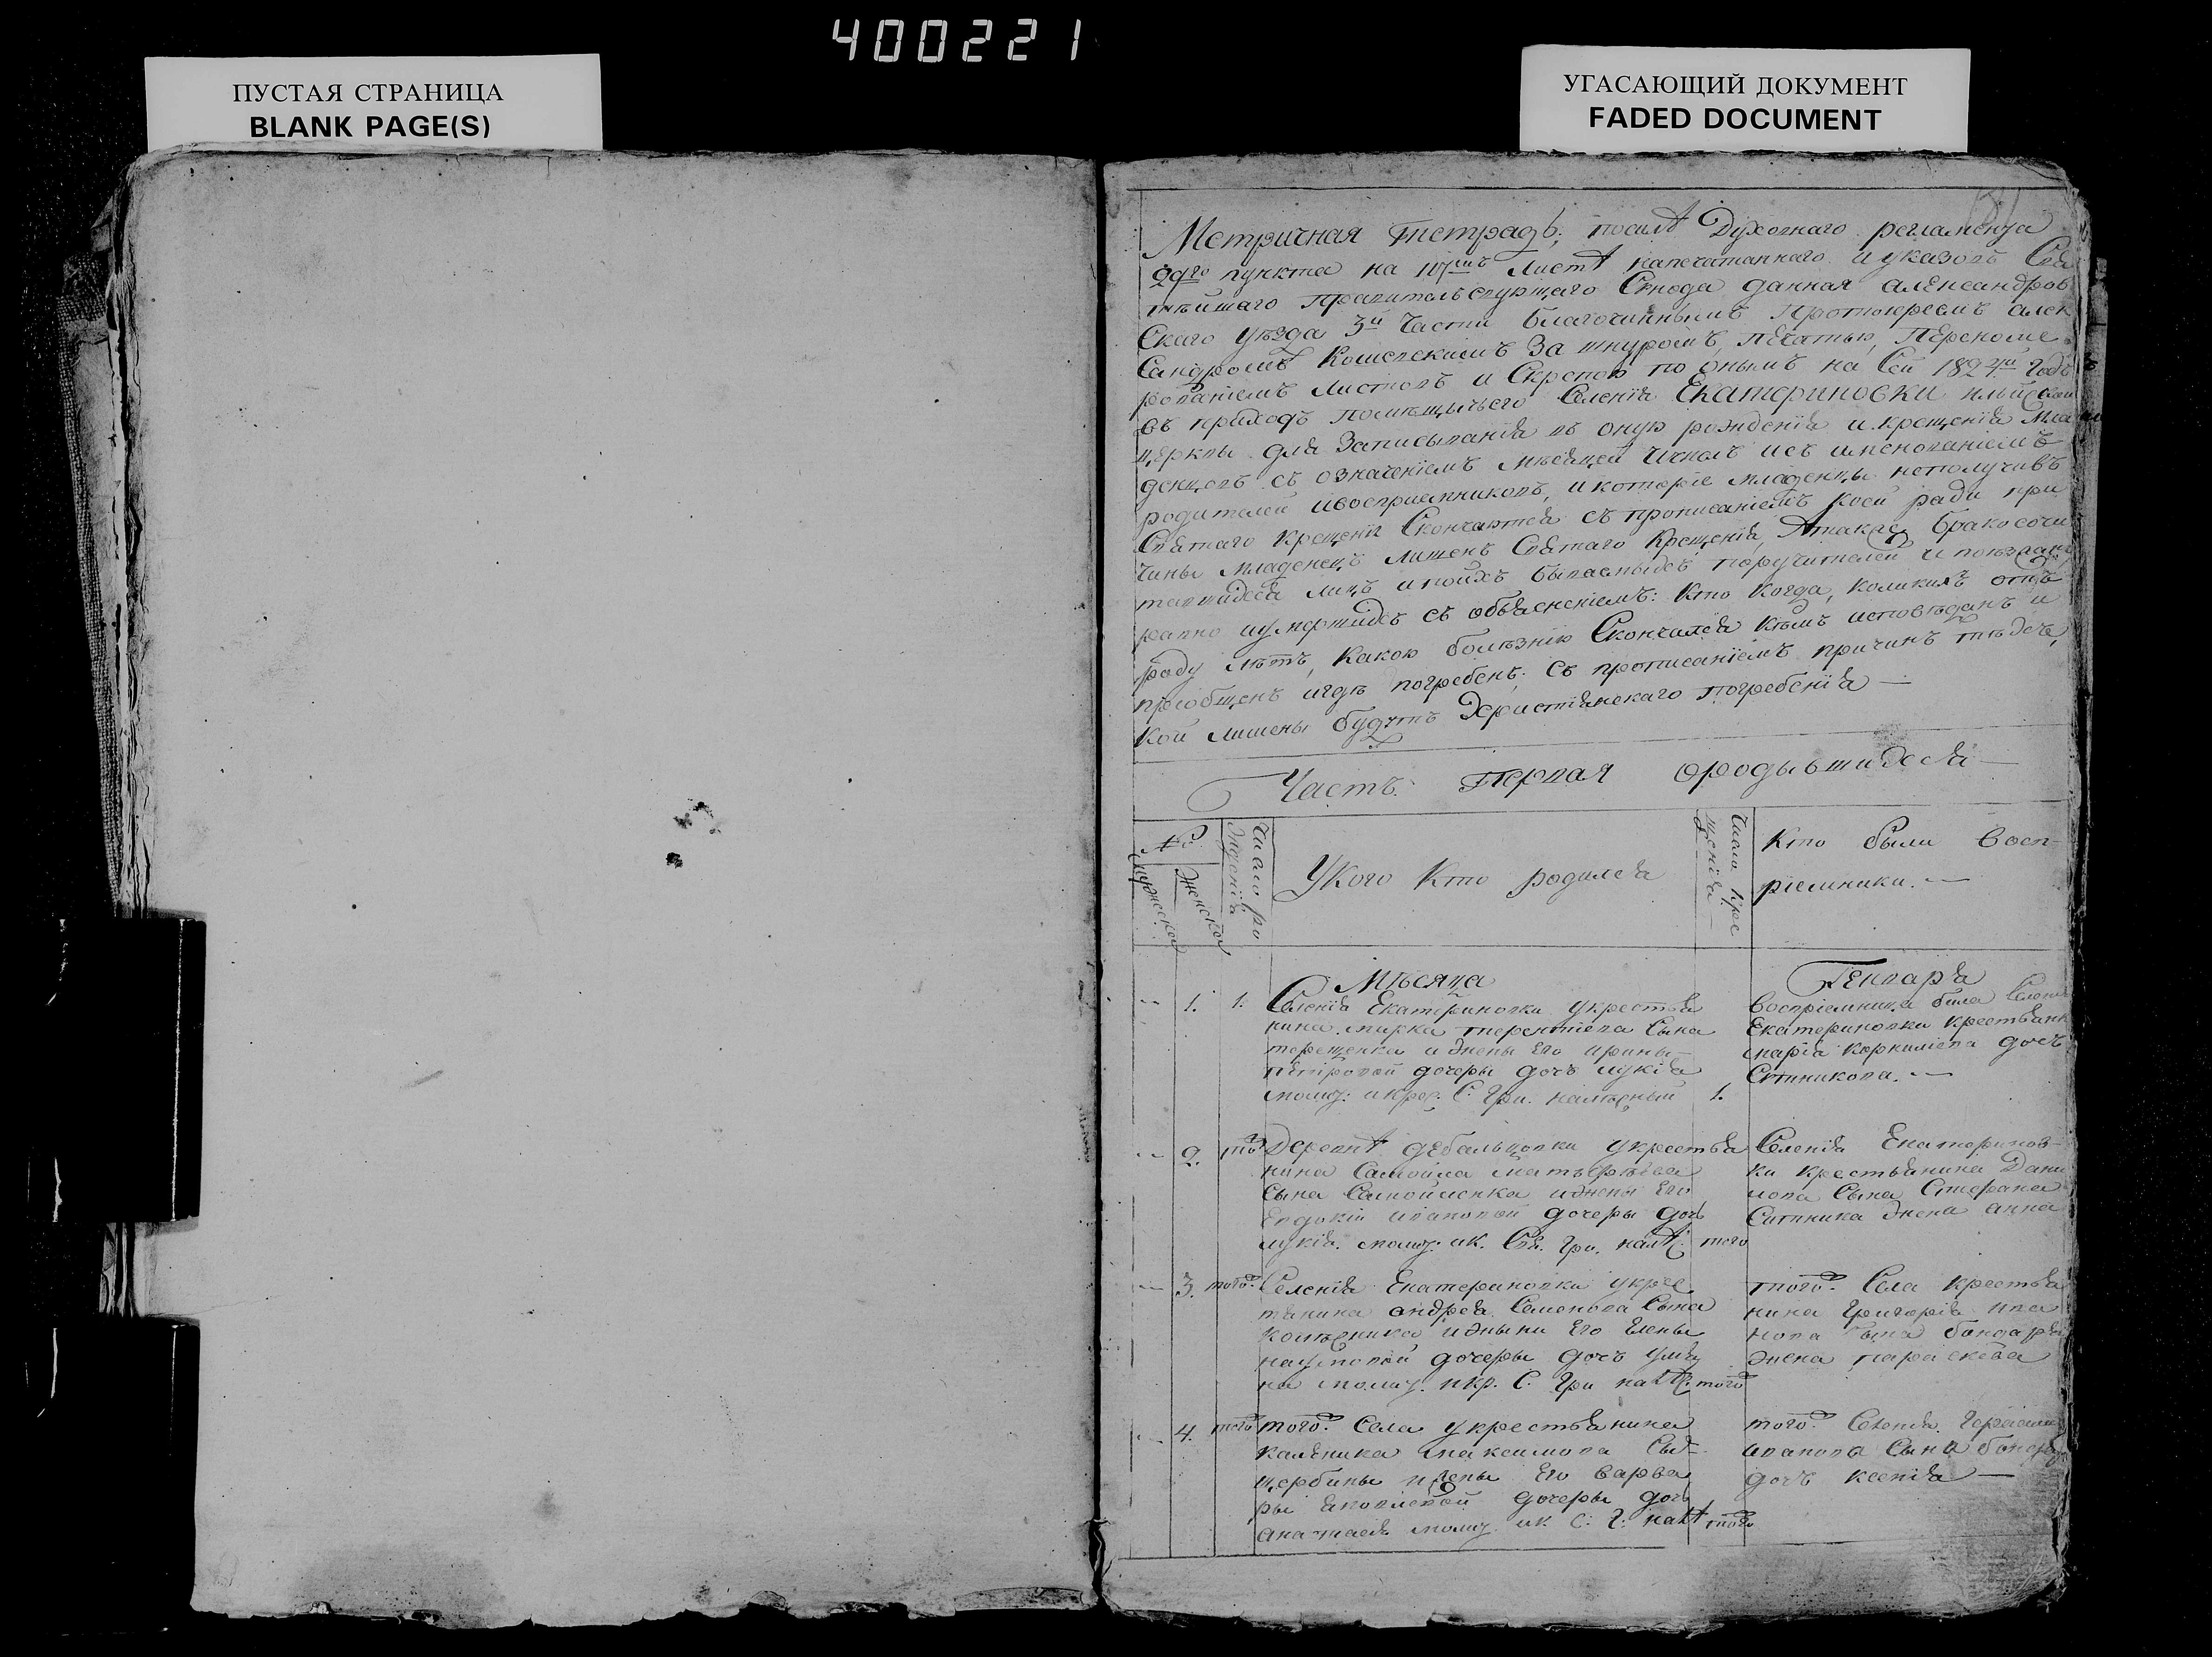 400221
ПУСТАЯ СТРАНИЦА
BLANK PAGE(S)
УГАСАЮЩИЙ ДОКУМЕНТ
FADED DOCUMENT
Метричная тетрадь; посилѣ Духовнаго регламента
29го пункта на 117мъ листѣ напечатаннаго и указовъ Свя
тѣйшаго Правительствующаго Синода данная александров
скаго уѣзда 3й части благочиннымъ Протоиереемъ алек
сандромъ за шнуромъ, печатью, перенуме
рованіемъ листовъ и скрепою по онымъ на Сей 1824й годъ
въ приходъ помѣщичьего Селенія Екатериновки
церквы для записыванія въ оную рожденія и крещенія мла
денцовъ съ означеніемъ мѣсяцей Чиселъ исъ именованіемъ
родителей ивосприемниковъ, икоторіе младенцы неполучивъ
Святаго крещенія Скончаются съ прописаніемъ коей ради при
чины младенецъ лишенъ Святаго Крещенія, Атакже бракосоче
тавшихся лицъ ипоихъ бываемыхъ поручителей и
равно иумершихъ съ объясненіемъ: кто когда, коликихъ отъ
роду лѣтъ, какою болѣзнію Скончался кѣмъ исповѣданъ и
пріобщенъ игдѣ погребенъ; съ прописаніемъ причинъ тѣхъ,
кои лишены будутъ Христіянскаго погребенія —
Часть первая ородывшихся —
№
мужеска
женска
Число ро
жденія
Укого Кто родился
Число кре
щенія —
Кто были восп-
ріемники. —
Мѣсяца Генваря
1. 1. Селенія Екатериновки укрестья
нина марка терентіева Сына
терещенка иЖены Его ирины
петровой дочеры дочь лукія
молит: икрес. С: Гри. 1.
Воспріемница была Селенія
Екатериновки крестьянк
марія корниліева дочь
Ситникова. —
2. того Деревнѣ дебальцовки укрестья
нина Самойла матвѣева
Сына Самойленка ижены Его
Евдокіи ивановой дочеры дочь
лукія. молит. ик. Свя. Гри. того
Селенія Екатеринов-
ки крестьянина Дани
лова Сына Стефана
Ситника жена анна
3. того Селенія Екатериновки укрес
тянина андрея Семенова Сына
иЖыни Его Елены
наумовой дочеры дочь улія
на молит. икр. С. Гри того
того Села крестья
нина Григорія ива
нова Сына бондаря
жена параскева
4. того того Села укрестьянина
калѣника максимова Сы-
щербины иЖены Его варва
ры дочеры дочь
анатасія молит ик. С: Г: того
того Селенія
иванова Сына
дочь ксенія —